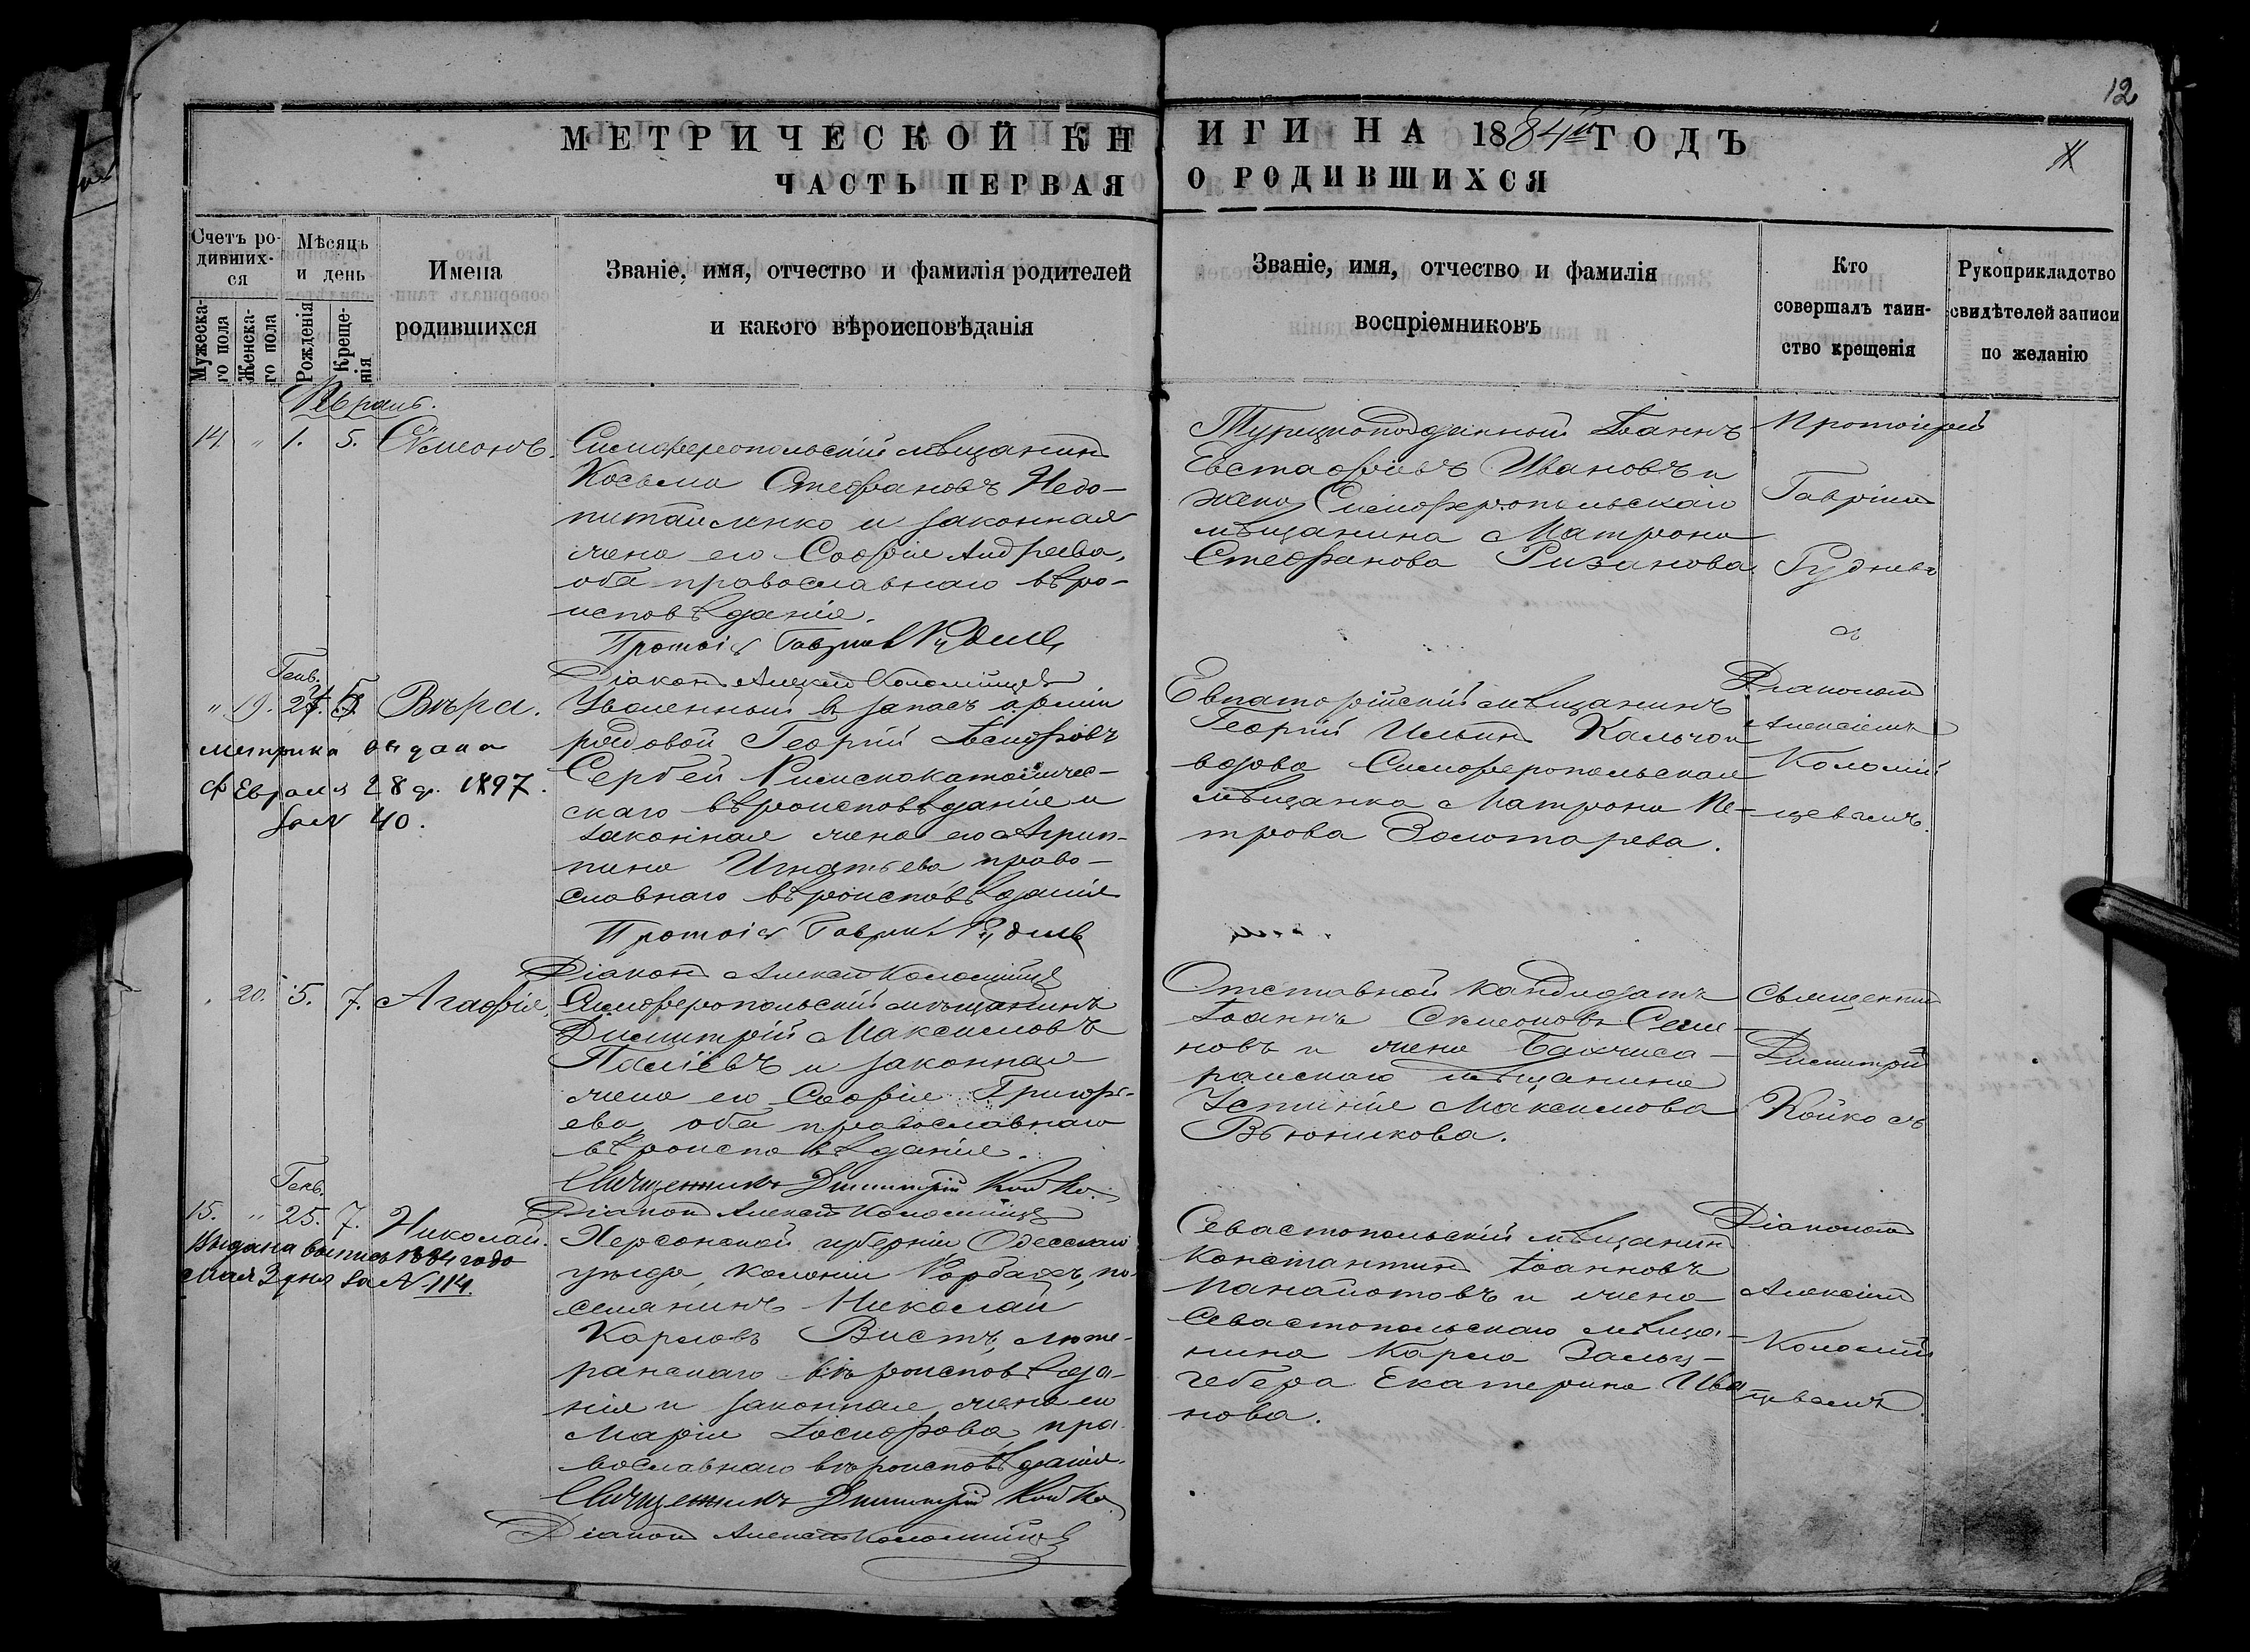 12
МЕТРИЧЕСКОЙ КНИГИ НА 1884й ГОДЪ
ЧАСТЬ ПЕРВАЯ О РОДИВШИХСЯ
Счетъ родившихся
Мужескаго пола
Женскаго пола
Мѣсяцъ и день
Рожденія
Крещенія
Имена
родившихся
Званіе, имя, отчество и фамилія родителей
и какого вѣроисповѣданія
Званіе, имя, отчество и фамилія
воспріемниковъ
Кто
совершалъ таин-
ство крещенія
Рукоприкладство
свидѣтелей записи
по желанію
Февраль.
14. " 1. 5. Сѵмеонъ.
Симферопольскій мѣщанинъ
Косьма Стефановъ Недо-
питайленко и законная
жена его Софія Андреева,
оба православнаго вѣро-
исповѣданія.
Протоіе Гавріил Руднев
Діаконъ Алексій Коломійцев
Турецкоподданный Іоаннъ
Евстафіевъ Ивановъ и
жена Симферопольскаго
мѣщанина Матрона
Стефанова Ризанова
Протоіерей
Гавріилъ
Рудневъ
съ
Генв.
" 19. 27. 5. Вѣра.
метрика выдана
Февраля 28 д. 1897.
за № 40.
Уволенный въ запасъ арміи
рядовой Георгій Іосифовъ
Сербей Римскокатоличес-
скаго вѣроисповѣданія и
законная жена его Агрип-
пина Игнатьева право-
славнаго вѣроисповѣданія
Протоіе Гавріил Руднев
Діаконъ Алексій Коломійцев
Евпаторійскій мѣщанинъ
Георгій Ильинъ
Симферопольская
мѣщанка Матрона Пе-
трова Золотарева.
Діакономъ
Алексіемъ
Коломій
цевымъ.
20. 5. 7. Агафія.
Симферопольскій мѣщанинъ
Димитрій Максимовъ
Паліевъ и законная
жена его Софія Григорь-
ева, оба православнаго
вѣроисповѣданія.
Священникъ Димитрій Койко.
Діаконъ Алексій Коломійцев
Отставной кандидатъ
Іоаннъ Сѵмеоновъ Семе-
новъ и жена Бахчиса-
райскаго мѣщанина
Устинія Максимова
Вьюникова.
Священникъ
Димитрій
Койко съ
Генв.
15. " 25. 7. Николай.
Выдана выпись 1884 года
Мая 3 дня за № 114.
Херсонской губерніи Одесскаго
уѣзда, колоніи Рорбахъ, по-
селянинъ Николай
Карловъ Вистъ, люте-
ранскаго вѣроисповѣда-
нія и законная жена его
Марія Іосифова, пра
вославнаго вѣроисповѣданія.
Священникъ Димитрій Койко
Діаконъ Алексій Коломійцев
Севастопольскій мѣщанинъ
Константинъ Іоанновъ
Панаіотовъ и жена
Севастопольскаго мѣща-
нина Карла Зальц-
гебера Екатерина Ива
нова.
Діакономъ
Алексіемъ
Коломій
цевымъ.